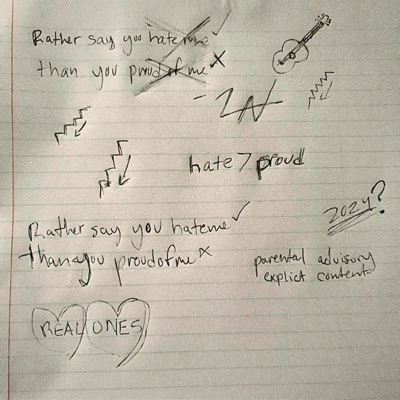 Rather say you hate me ✓
than you proud of me x
hate > proud
2024?
Rather say you hate me ✓
than you proud of me x
parental advisory
explict content
REAL ONES